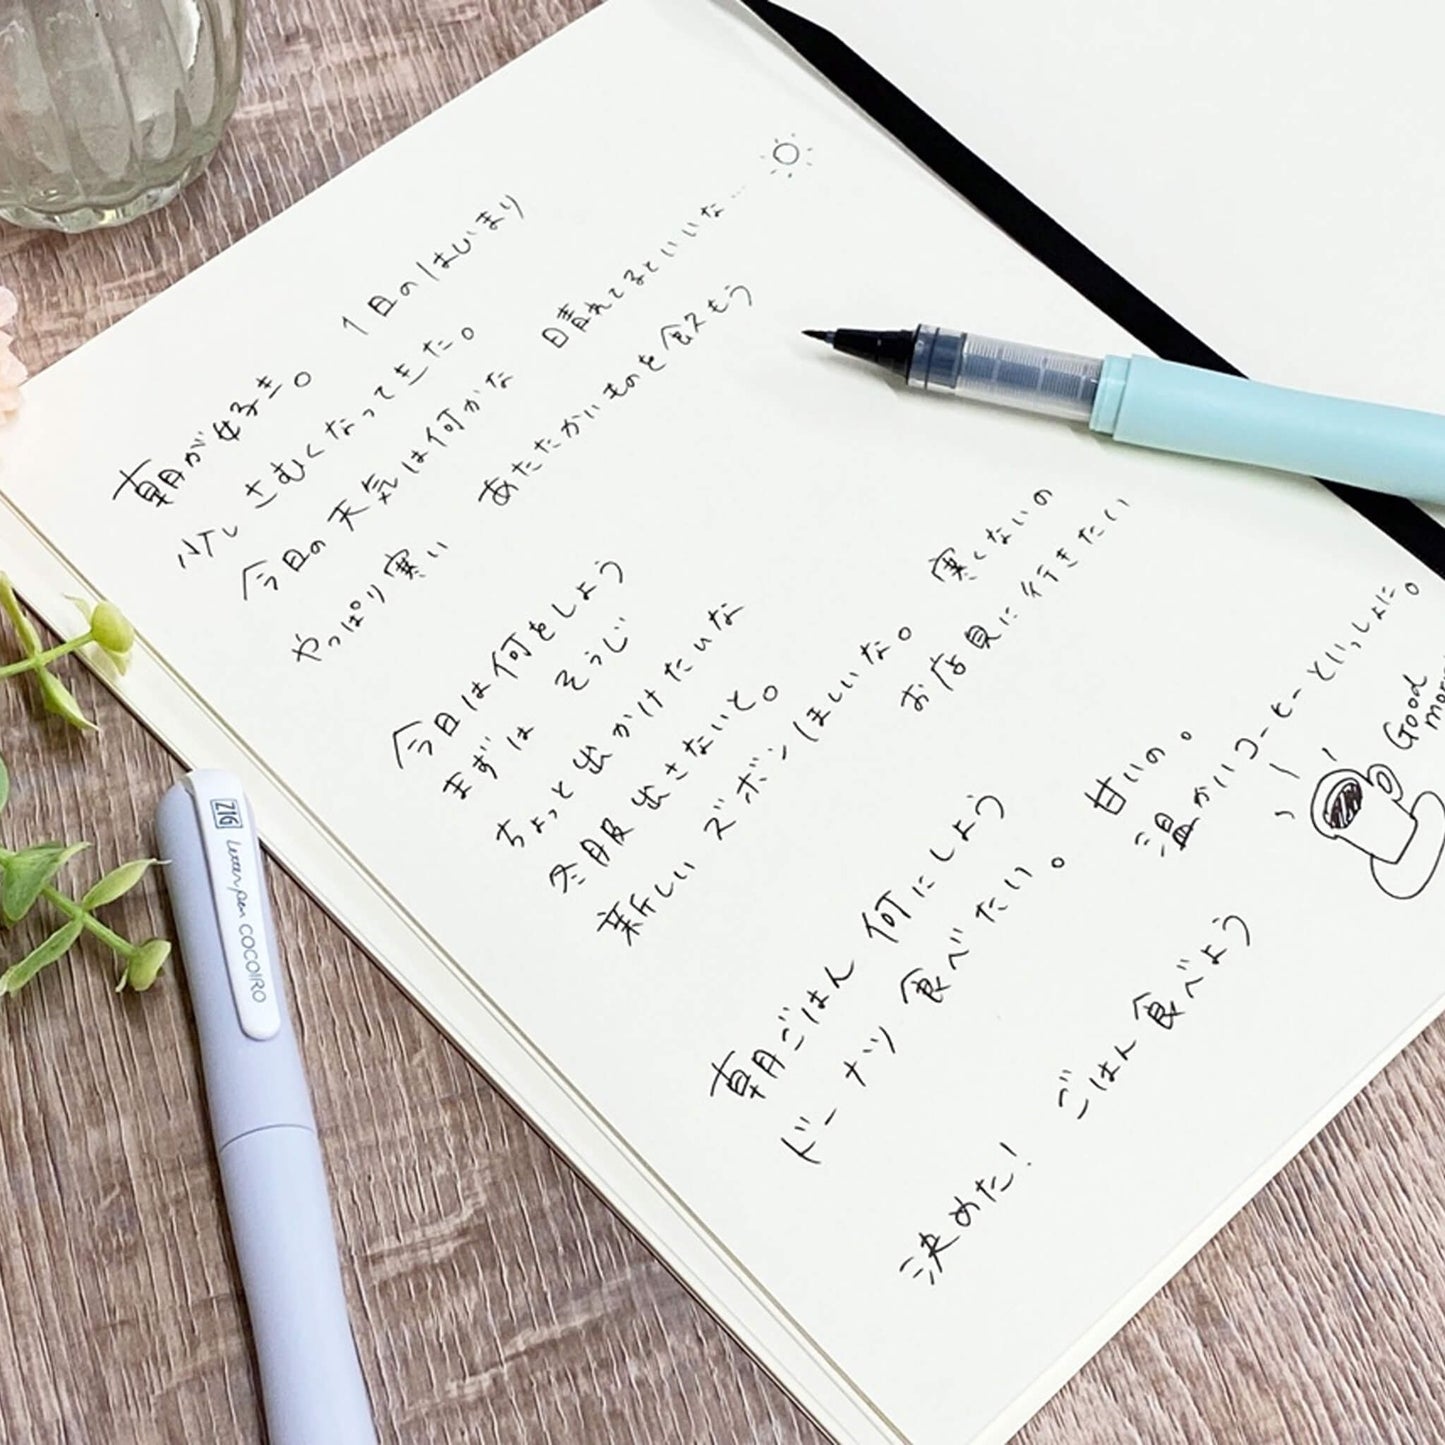 朝が好き。 1日のはじまり
少し さむくなってきた。
今日の天気は何かな 晴れてるといいな…
やっぱり寒い あたたかいものを飲もう
今日は何をしよう
まずは そうじ
ちょっと出かけたいな
冬服出さないと。
新しい ズボンほしいな。 寒くないの
お店見に行きたい
朝ごはん 何にしよう
ドーナツ 食べたい。 甘いの。
温かいコーヒーといっしょに。
Good
決めた! ごはん食べよう
ZIG
Letter pen COCOIRO